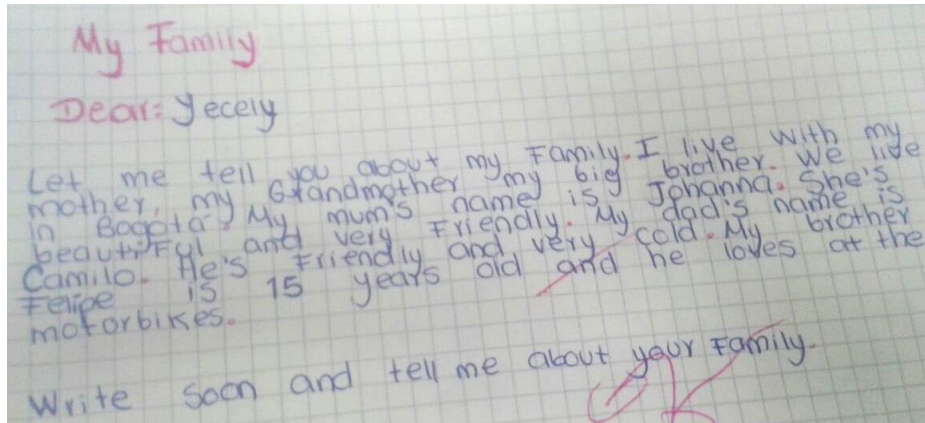 My Family
Dear: Yecely
Let me tell you about my Family. I live with my
mother, my Grandmother my big brother. We live
in Bogotá. My mum's name is Johanna. She's
beautiful and very Friendly. My dad's name is
Camilo. He's Friendly and very cold. My brother
Felipe is 15 years old and he loves at the
motorbikes.
Write soon and tell me about your Family.
OK